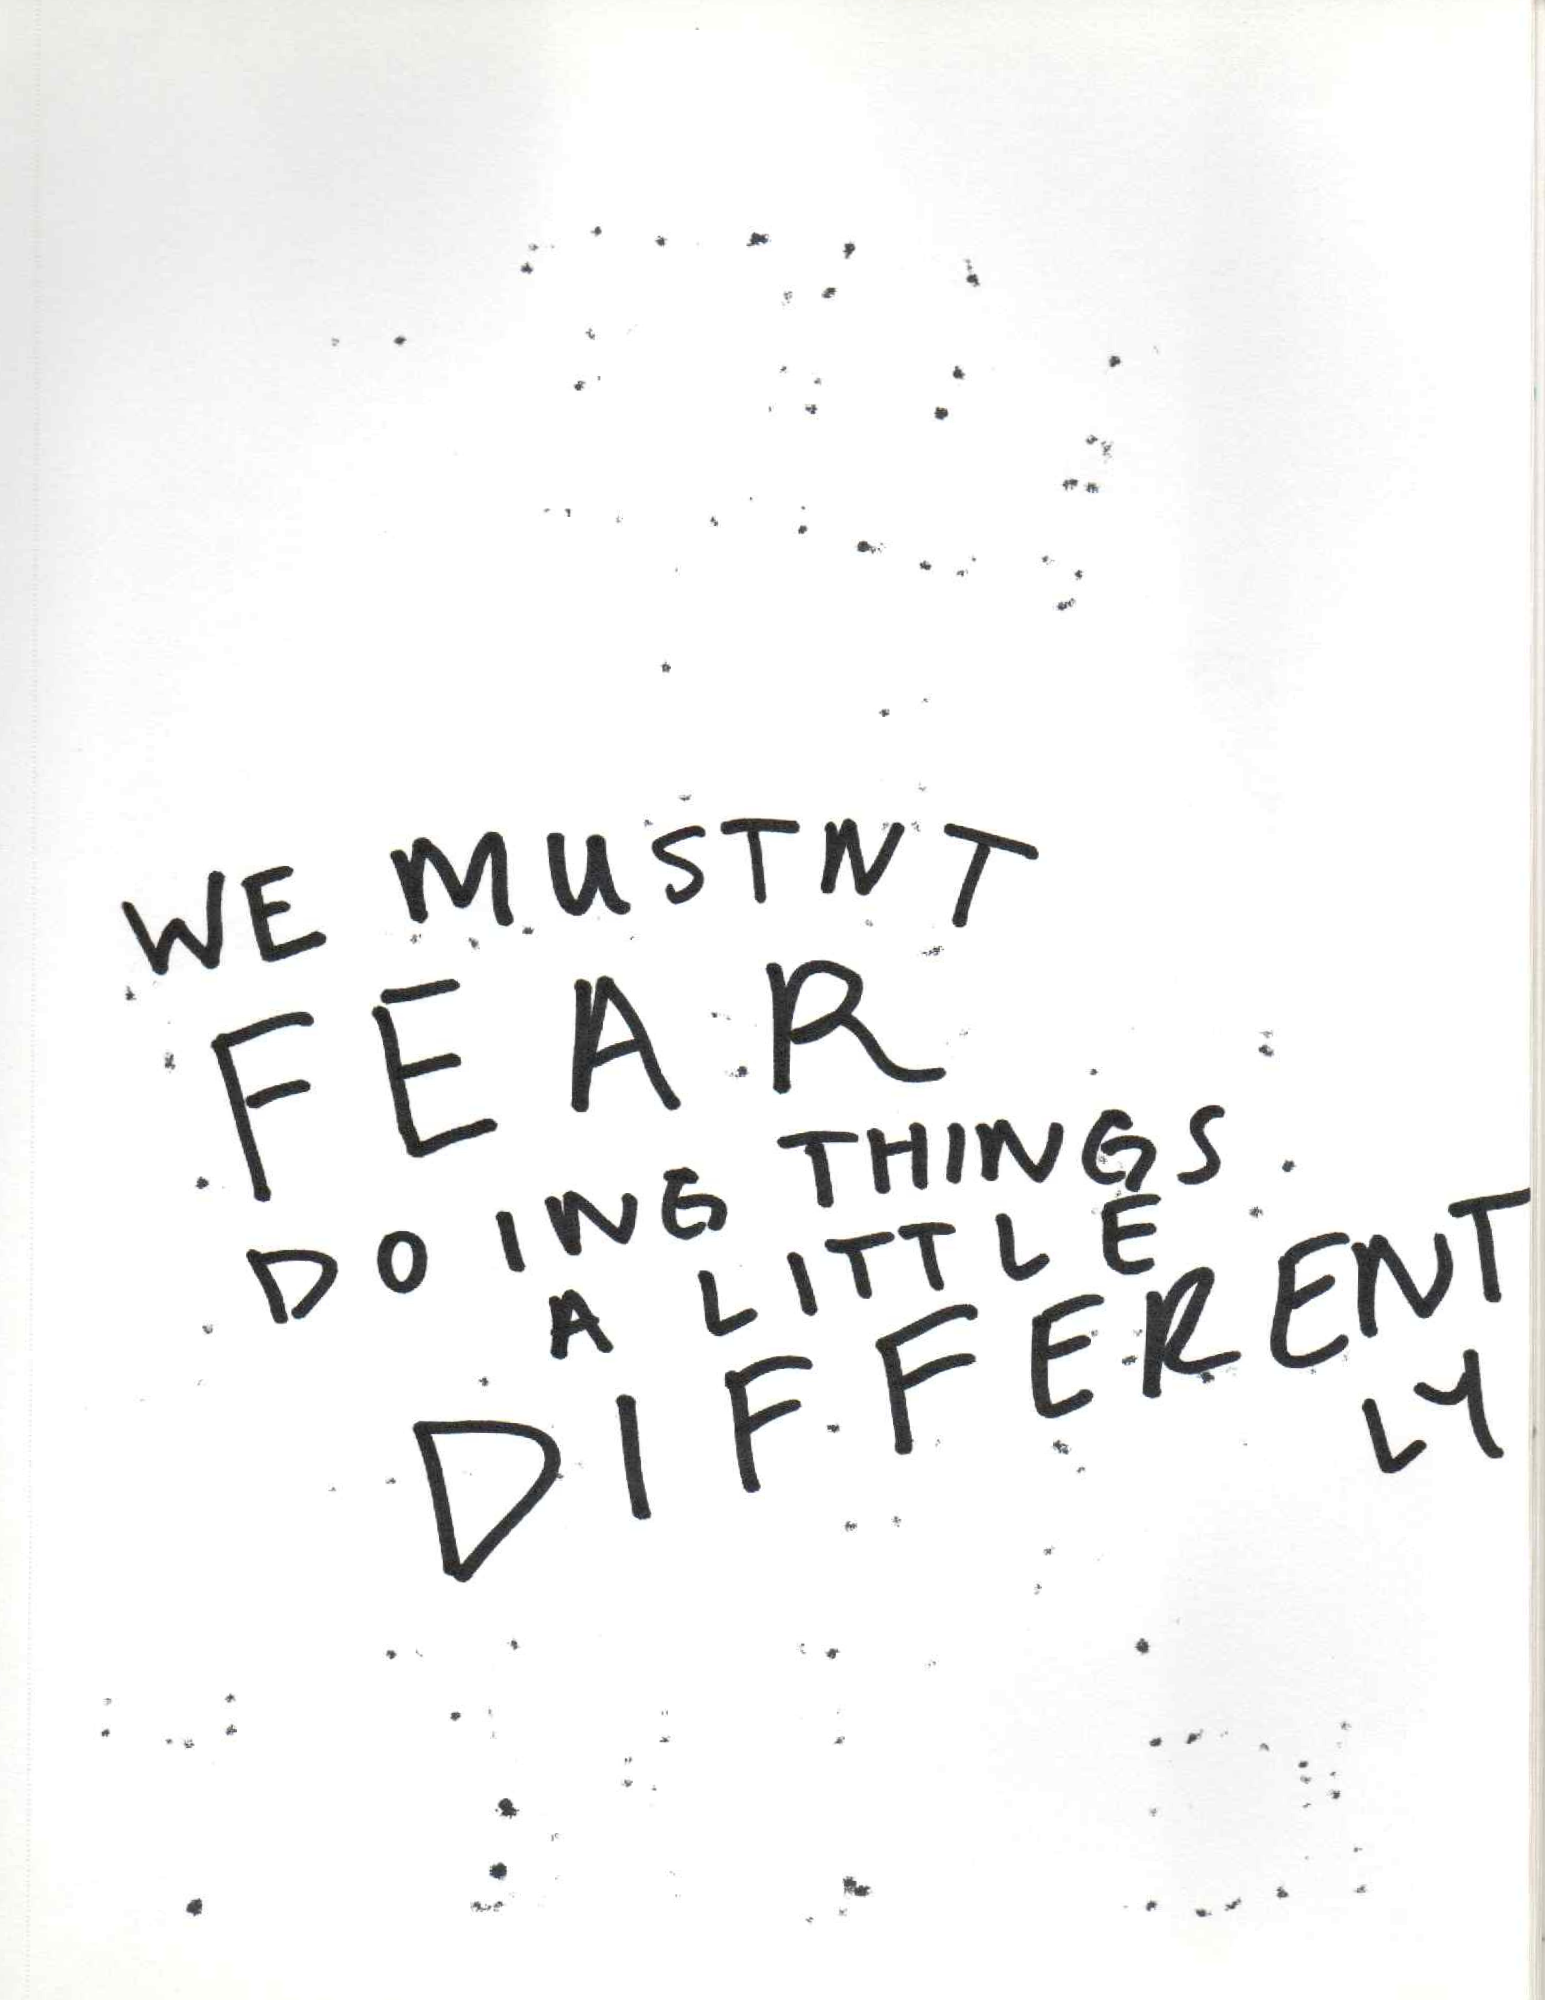 WE MUSTNT
FEAR
DOING THINGS
A LITTLE
DIFFERENT
LY